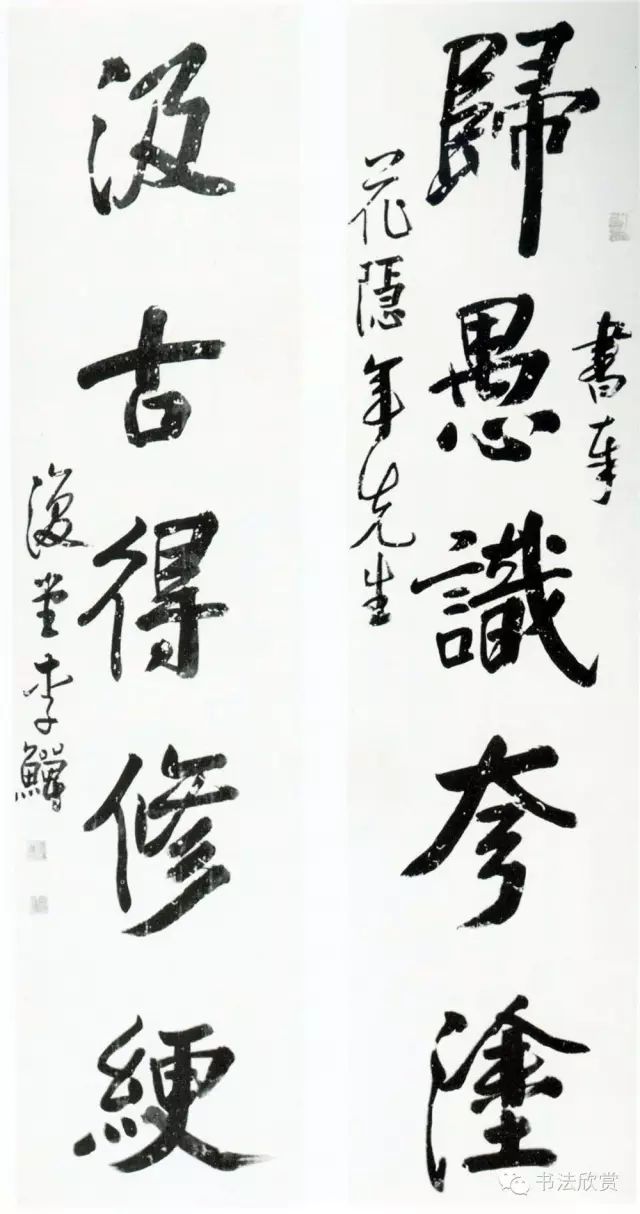 書奉
歸愚識夸塗
花隱年先生
汲古得修綆
復堂李鱓
书法欣赏